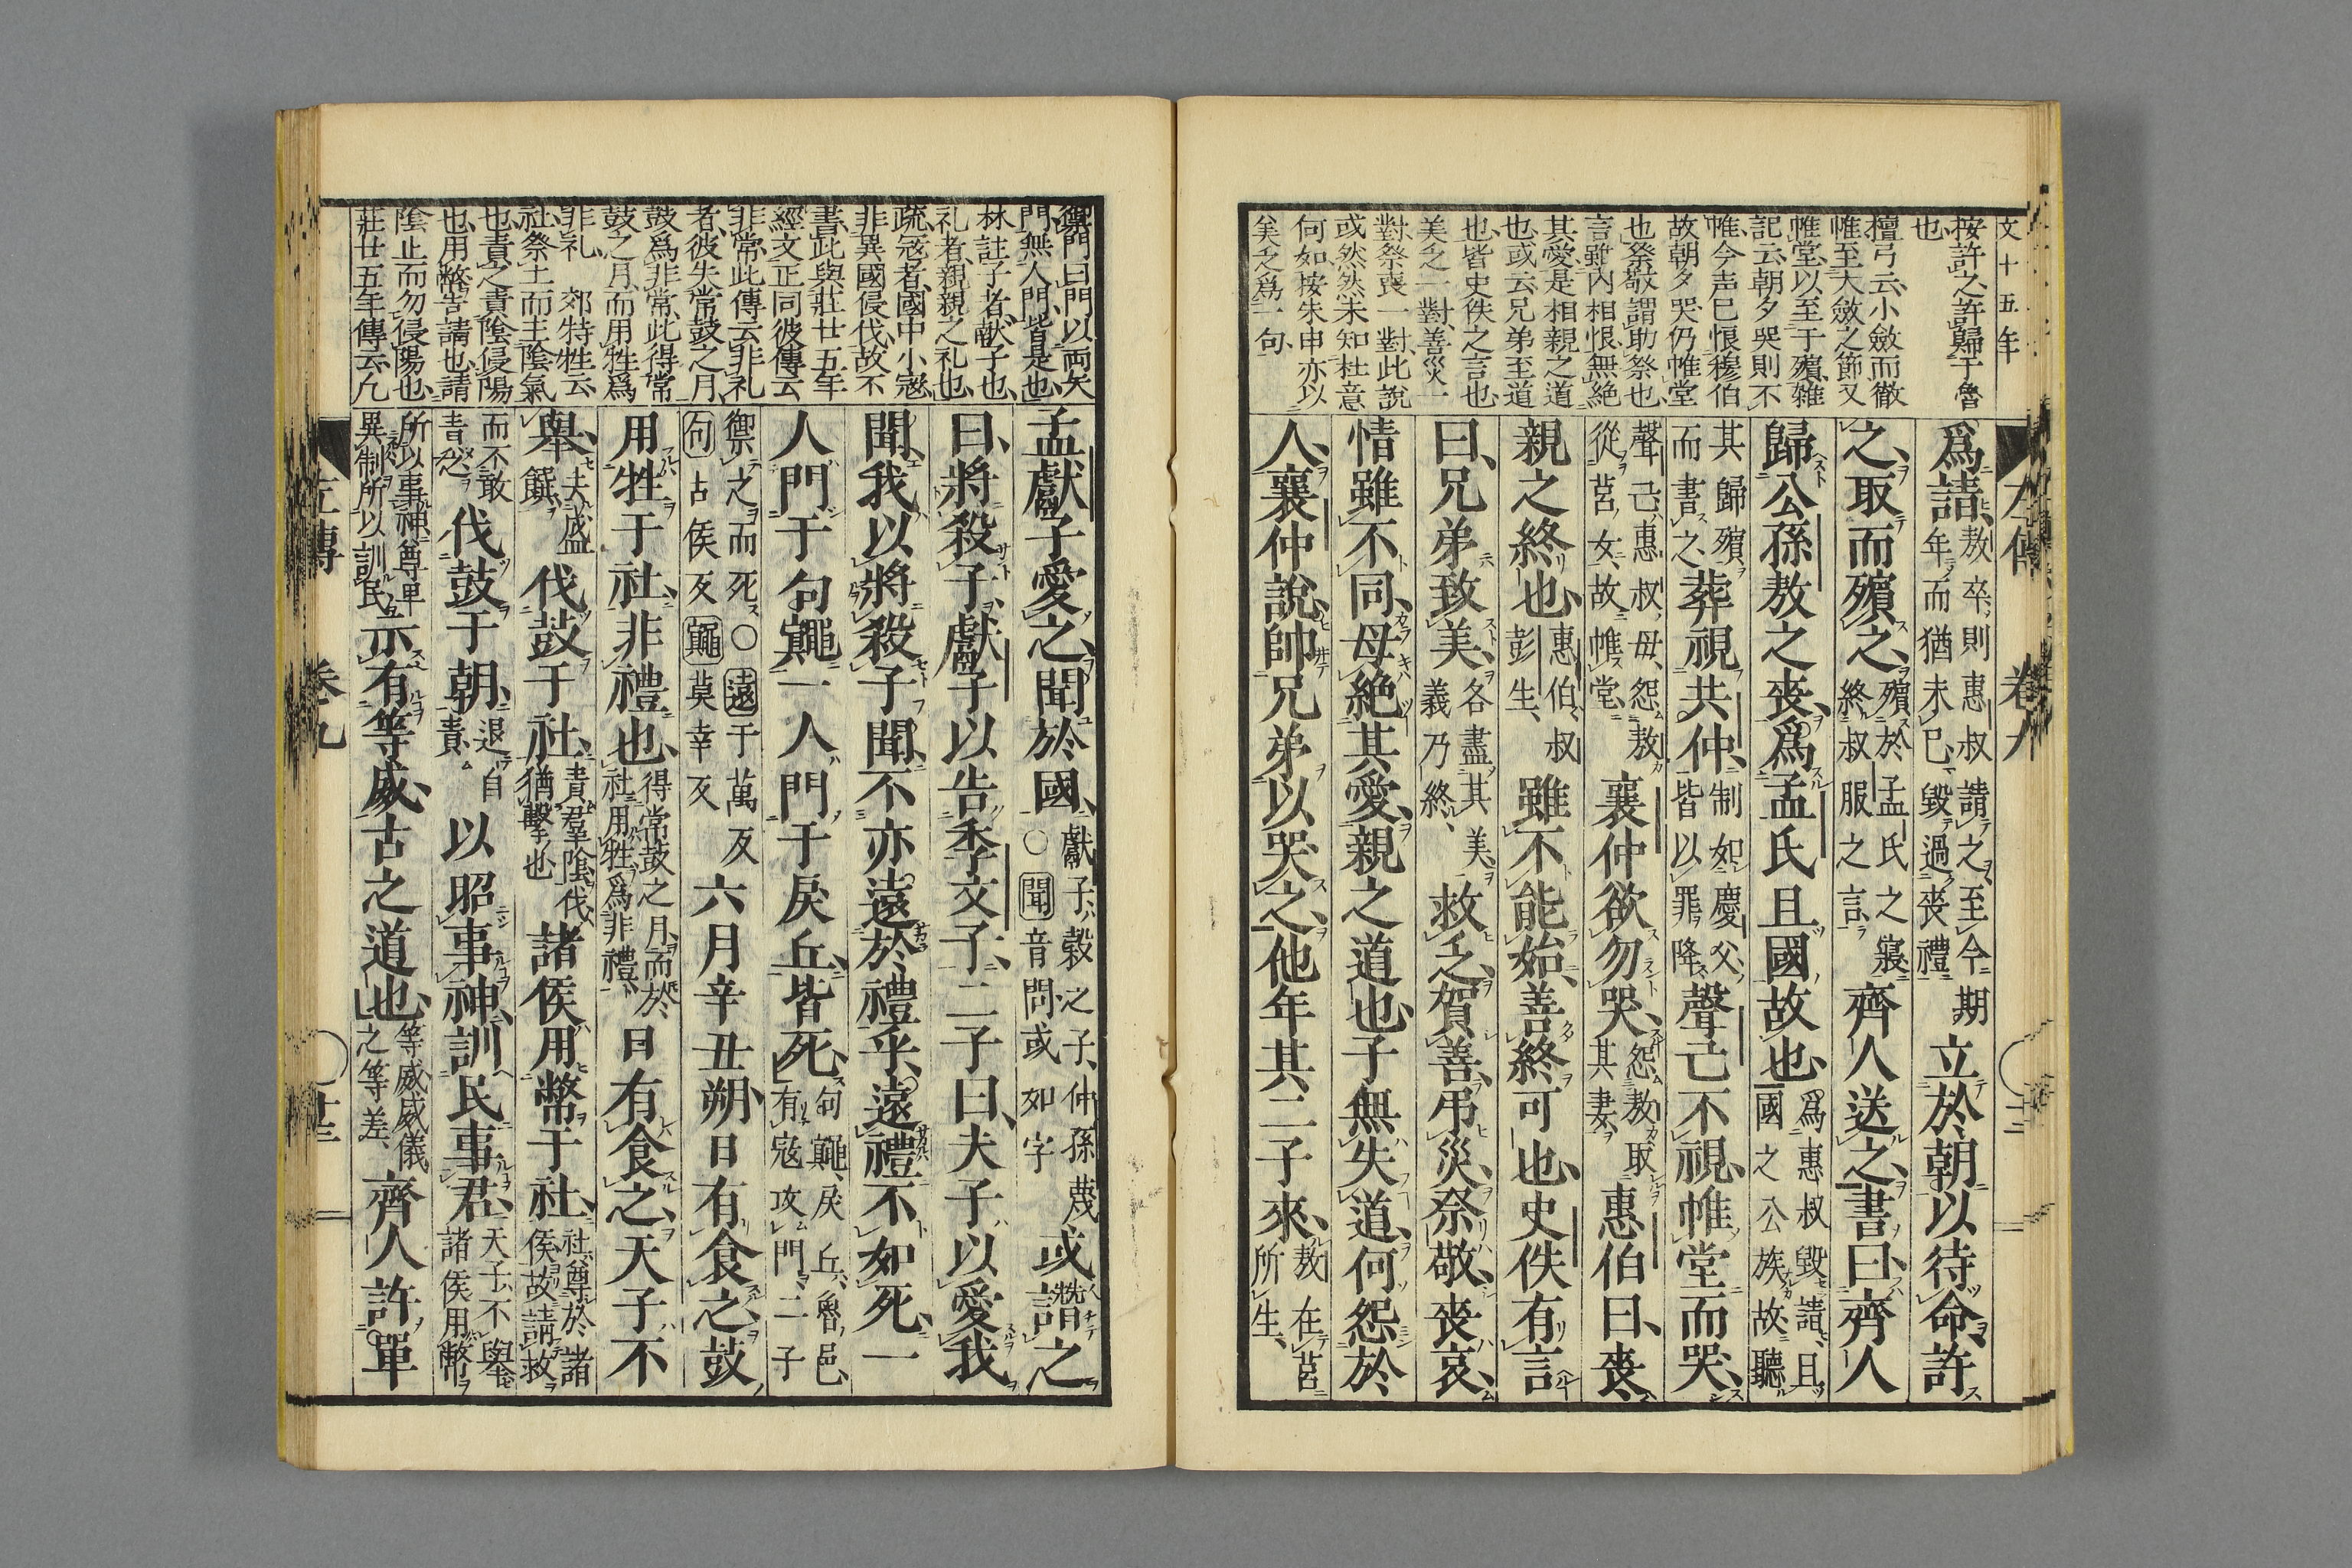 文十五年
按許之許歸于魯
也
檀弓云小斂而徹
帷至大斂之節又
帷堂以至于殯雜
記云朝夕哭則不
帷今声已恨穆伯
故朝夕哭仍帷堂
也祭敬謂助祭也
言雖內相恨無絶
其愛是相親之道
也或云兄弟至道
也皆史佚之言也
美乏一對善災一
對祭喪一對此說
或然然未知杜意
何如按朱申亦以
矣之爲一句
爲請敖卒則惠叔請之至今期年而猶未已毀過喪禮立於朝以待命許
之取而殯之殯於孟氏之寢終叔服之言齊人送之書曰齊人
歸公孫敖之喪爲孟氏且國故也爲惠叔毀請且國之公族故聽
其歸殯而書之葬視共仲制如慶父皆以罪降聲己不視帷堂而哭
聲己惠叔母怨敖從莒女故帷堂襄仲欲勿哭怨敖取其妻惠伯曰喪
親之終也惠伯叔彭生雖不能始善終可也史佚有言
曰兄弟致美各盡其美義乃終救乏賀善弔災祭敬喪哀
情雖不同母絶其愛親之道也子無失道何怨於
人襄仲說帥兄弟以哭之他年其二子來敖在莒所生
左傳 卷九
禦門曰門以両矣
門無人門皆是也
林註子者獻子也
礼者親親之礼也
疏寇者國中小寇
非異國侵伐故不
書此與莊廿五年
經文正同彼傳云
非常此傳云非礼
者彼失常鼓之月
鼓爲非常此得常
鼓之月而用牲爲
非礼 郊特牲云
社祭土而主陰氣
也責之責陰侵陽
也用幣告請也請
陰止而勿侵陽也
莊廿五年傳云凡
孟獻子愛之聞於國獻子穀之子仲孫蔑○聞音問或如字或譖之
曰將殺子獻子以告季文子二子曰夫子以愛我
聞我以將殺子聞不亦遠於禮乎遠禮不如死一
人門于句鼆一人門于戾丘皆死句鼆戾丘魯邑有寇攻門二子
禦之而死○遠于萬反句古侯反鼆莫幸反六月辛丑朔日有食之鼓
用牲于社非禮也得常鼓之月而於社用牲爲非禮日有食之天子不
舉去盛饌伐鼓于社責羣陰伐猶擊也諸侯用幣于社社尊於諸侯故請救
而不敢責之伐鼓于朝退自責以昭事神訓民事君天子不舉諸侯用幣
所以事神尊卑異制所以訓民示有等威古之道也等威威儀之等差齊人許單
左傳 卷九 廿三